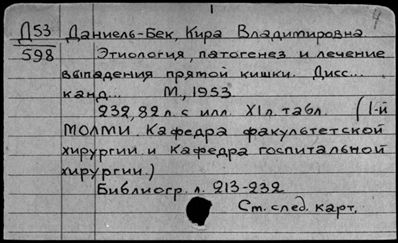 4
Д53 Даниель-Бек, Кира Владимировна.
598 Этиология, патогенез и лечение
выпадения прямой кишки. Дисс...
канд... М., 1953.
232, 82 л. с илл. XI л. табл. (I-й
МОЛМИ. Кафедра факультетской
хирургии и Кафедра госпитальной
хирургии.)
Библиогр. л. 213-232
См. след. карт.